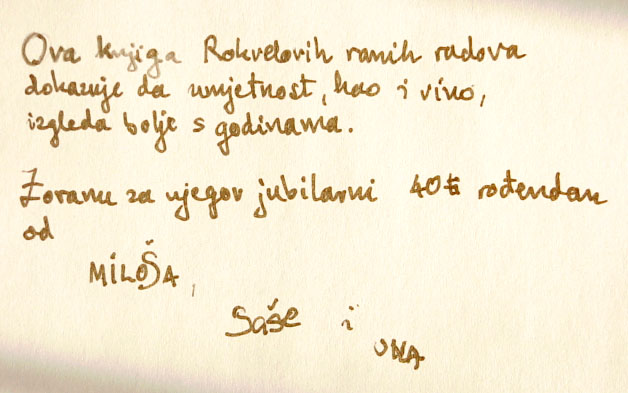 Ova knjiga Rokvelovih ranih radova
dokazuje da umjetnost, kao i vino,
izgleda bolje s godinama.
Zoranu za njegov jubilarni 40ti rođendan
od
MiLOŠA,
Saše i
UNA